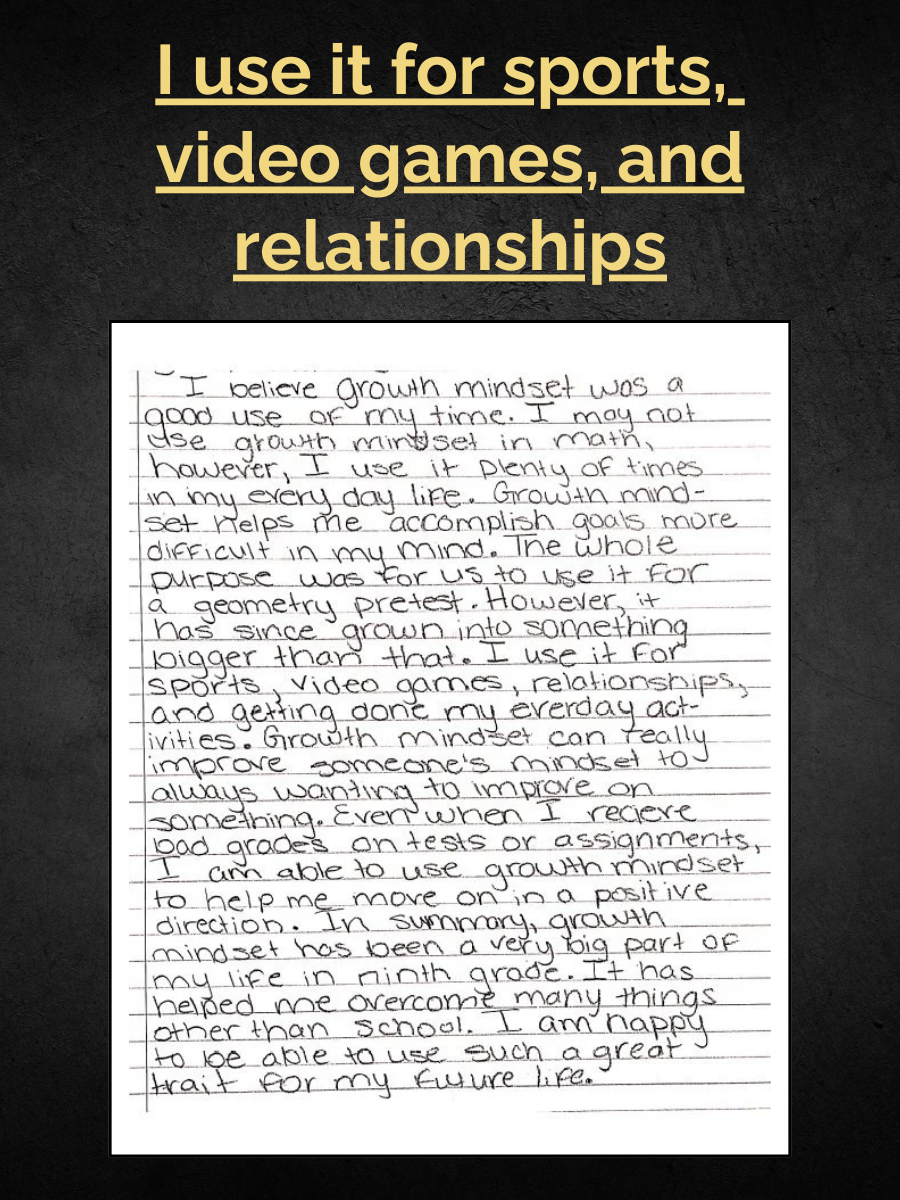 I use it for sports,
video games, and
relationships
I believe growth mindset was a
good use of my time. I may not
use growth mindset in math,
however, I use it plenty of times
in my every day life. Growth mind-
set helps me accomplish goals more
difficult in my mind. The whole
purpose was for us to use it for
a geometry pretest. However, it
has since grown into something
bigger than that. I use it for
sports, video games, relationships,
and getting done my everday act-
ivities. Growth mindset can really
improve someone's mindset to
always wanting to improve on
something. Even when I recieve
bad grades on tests or assignments,
I am able to use growth mindset
to help me move on in a positive
direction. In summary, growth
mindset has been a very big part of
my life in ninth grade. It has
helped me overcome many things
other than school. I am happy
to be able to use such a great
trait for my future life.